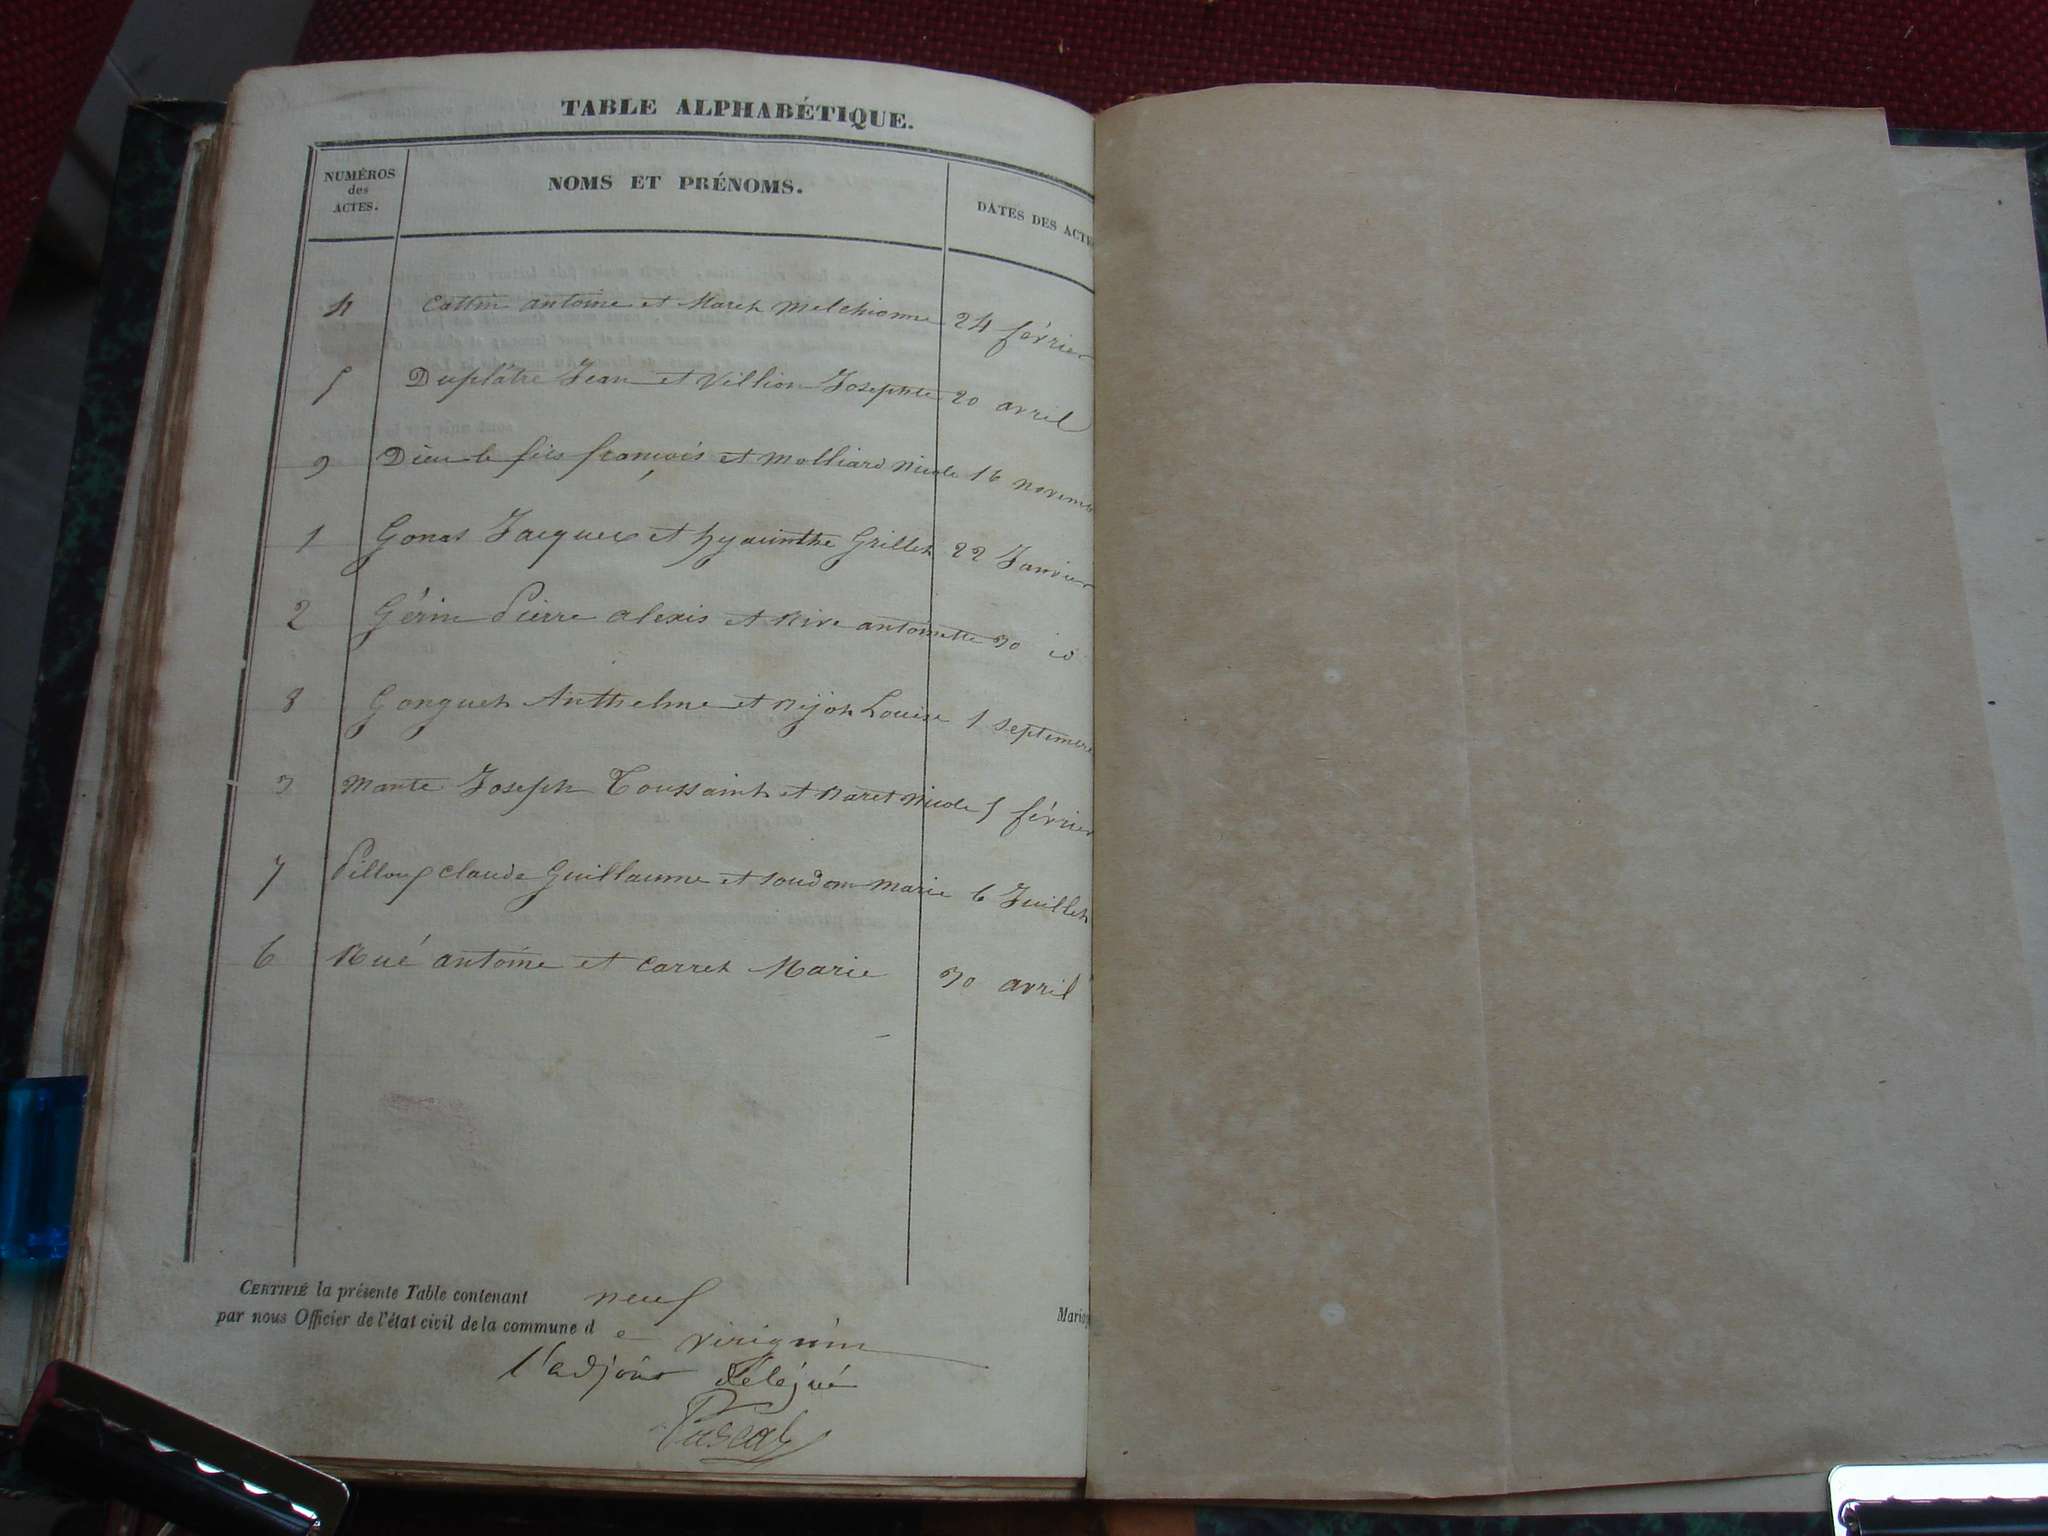 TABLE ALPHABÉTIQUE.
NUMÉROS des ACTES. NOMS ET PRÉNOMS. DATES DES ACTE
4 Cattin antoine et Maret Melchionne 24 février
5 Duplâtre Jean et Villion Josephte 20 avril
9 Dieu le fils françois et Molliard Nicole 16 novem
1 Gonat Jacques et hyacinthe Grillet 22 Janvier
2 Gérin Pierre alexis et Rive antoinette 30 id
8 Gonguet Anthelme et Louise 1 septembre
3 Mante Joseph Toussaint et Nicole 5 février
7 Pilloux Claude Guillaume et soudan marie 6 Juillet
6 Rué antoine et Carret Marie 30 avril
CERTIFIÉ la présente Table contenant neuf Maria
par nous Officier de l'état civil de la commune d e virignin
l'adjoint Délégué
Pascal